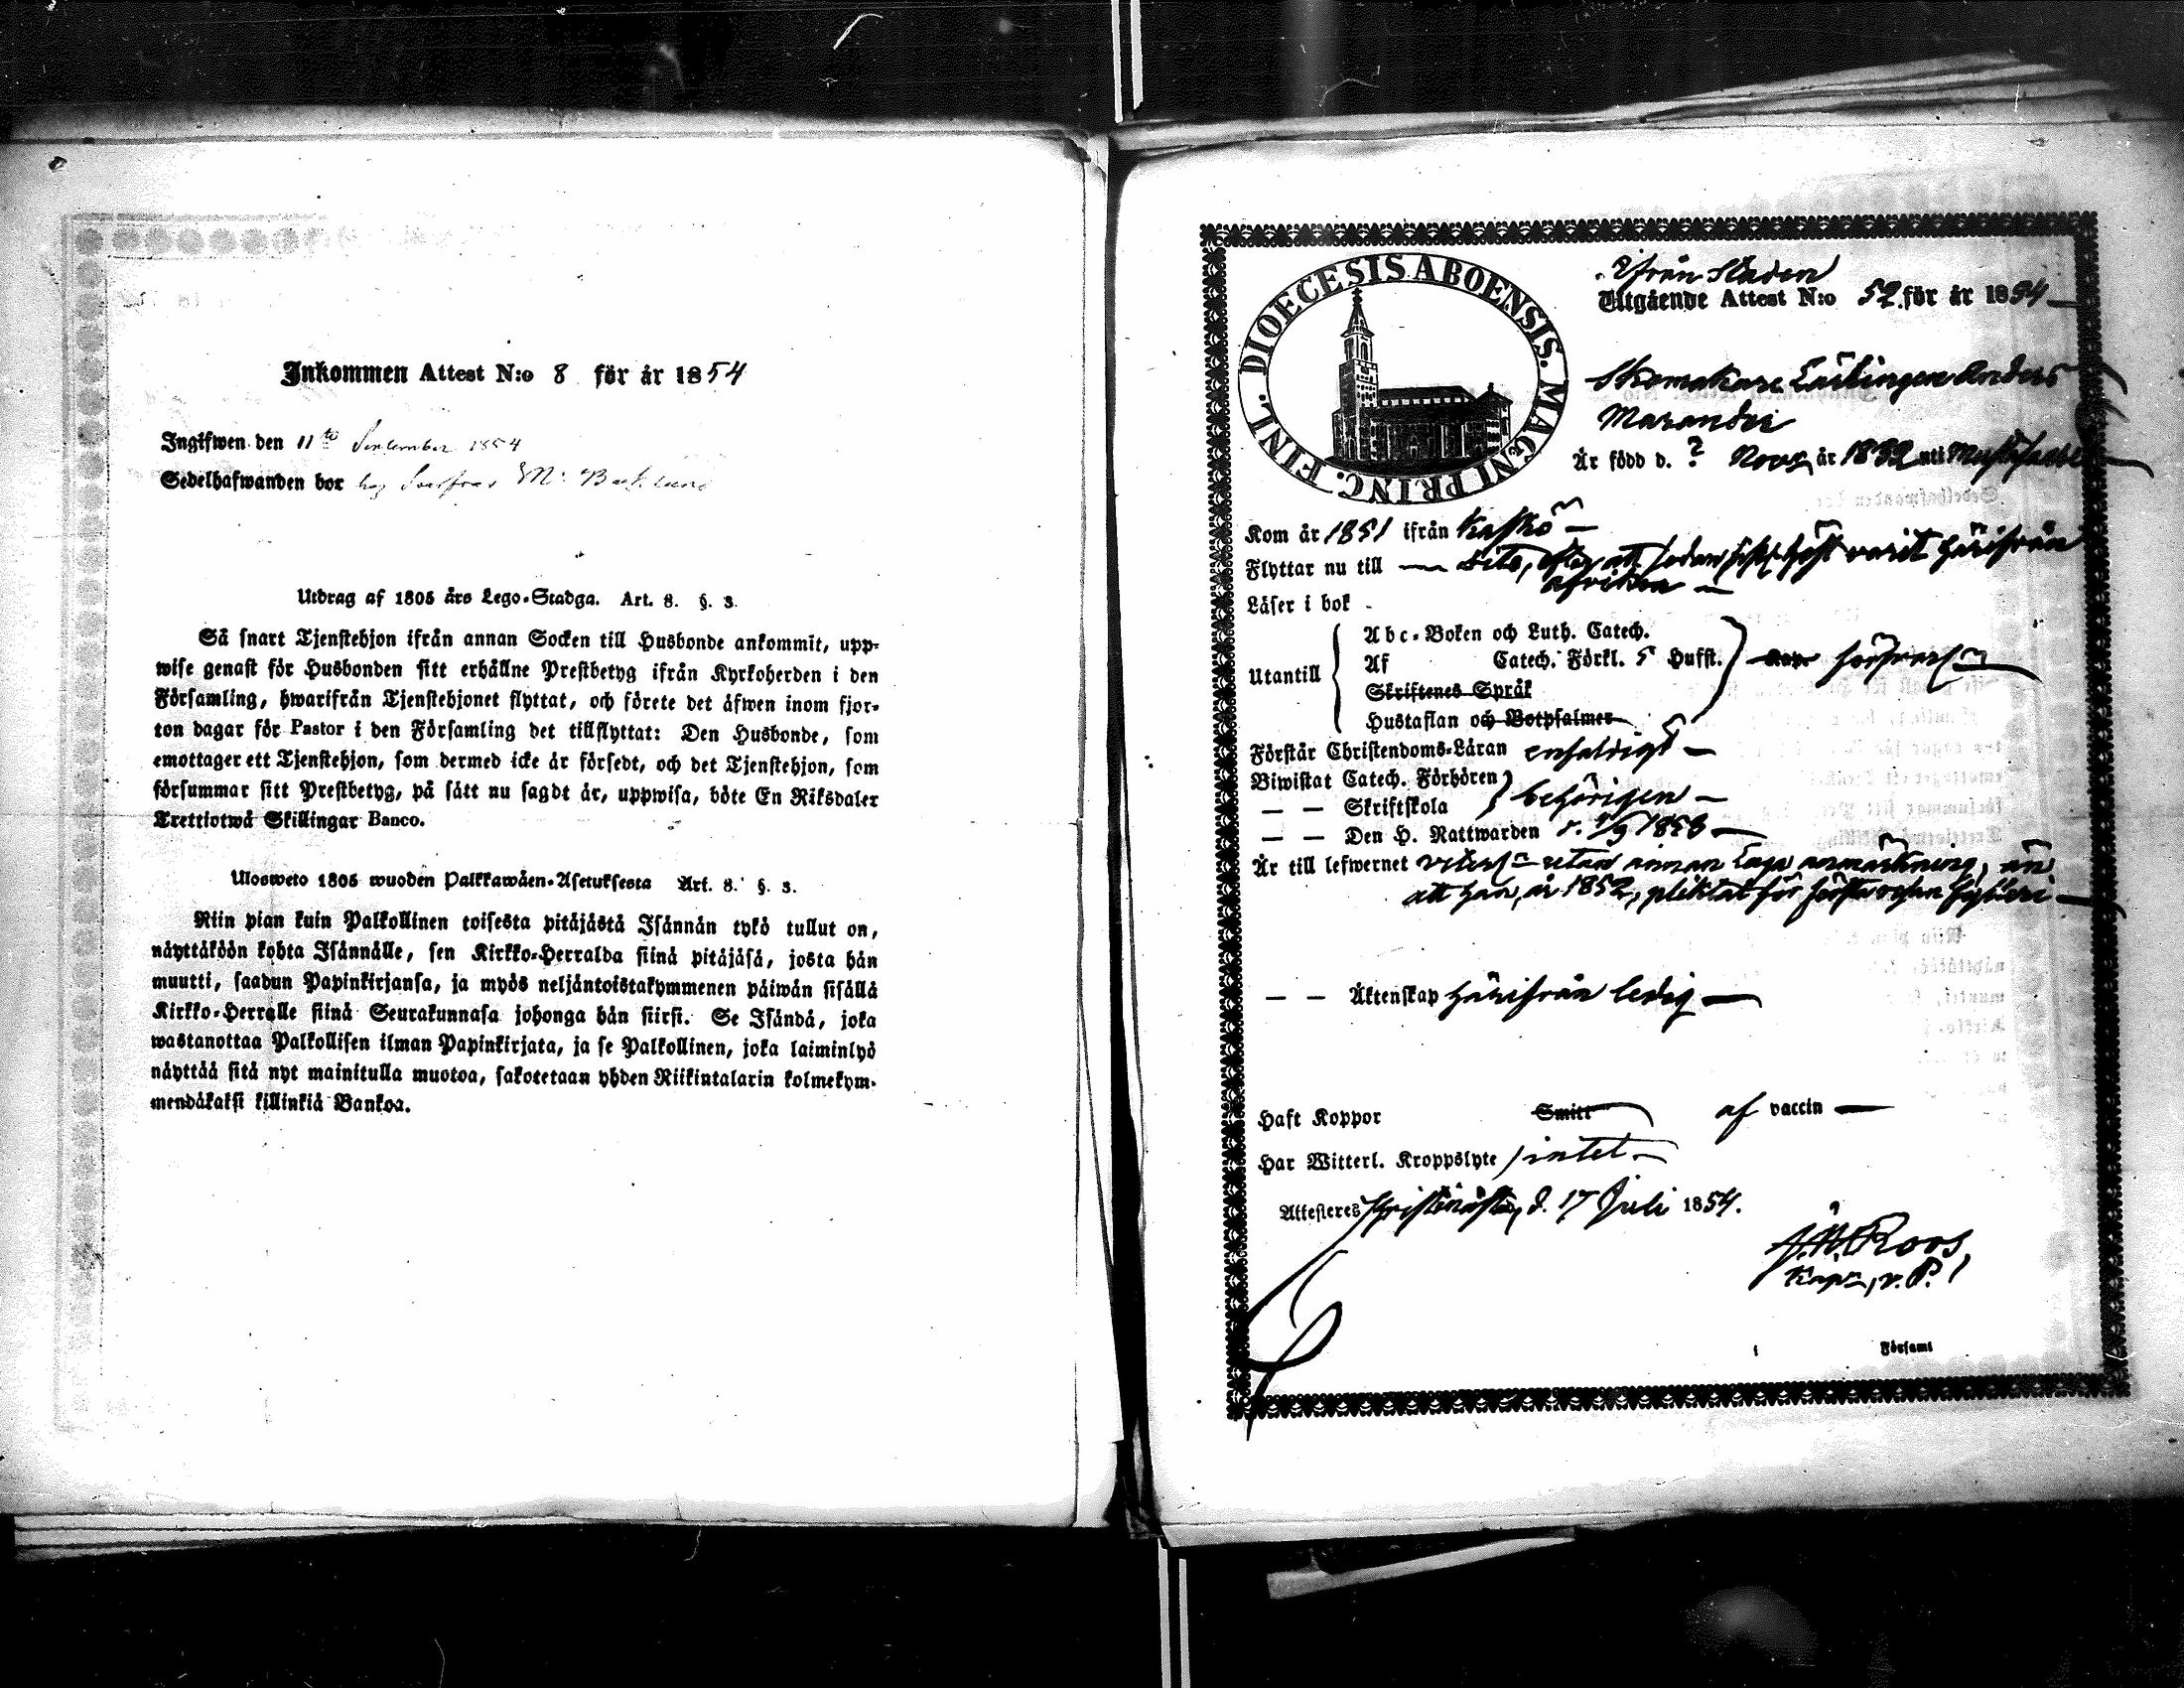 Inkommen Attest N:o 8 för år 1854
Ingifwen den 11te September 1854
Sedelhafwanden bor hos
Utdrag af 1805 års Lego-Stadga. Art. 8. §. 3.
Så snart Tjenstehjon ifrån annan Socken till Husbonde ankommit, upp-
wise genast för Husbonden sitt erhållne Prestbetyg ifrån Kyrkoherden i den
Församling, hwarifrån Tjenstehjonet flyttat, och förete det äfwen inom fjor-
ton dagar för Pastor i den Församling det tillflyttat: Den Husbonde, som
emottager ett Tjenstehjon, som dermed icke är försedt, och det Tjenstehjon, som
försummar sitt Prestbetyg, på sätt nu sagdt är, uppwisa, böte En Riksdaler
Trettiotwå Skillingar Banco.
Ulosweto 1805 wuoden Palkkawäen-Asetuksesta Art. 8. §. 3.
Niin pian kuin Palkollinen toisesta pitäjästä Isännän tykö tullut on,
näyttäköön kohta Isännälle, sen Kirkko-Herralda siinä pitäjäsä, josta hän
muutti, saadun Papinkirjansa, ja myös neljäntoistakymmenen päiwän sisällä
Kirkko-Herralle siinä Seurakunnasa johonga hän siirsi. Se Isändä, joka
wastanottaa Palkollisen ilman Papinkirjata, ja se Palkollinen, joka laiminlyö
näyttää sitä nyt mainitulla muotoa, sakotetaan yhden Riikintalarin kolmekym-
mendäkaksi killinkiä Bankoa.
DIOECESIS ABOENSIS. MAGNI PRINC. FINL.
Ifrån Staden
Utgående Attest N:o 52 för år 1854
Skomakare Lärlingen Anders
Marander
Är född d. ? Nov. år 1832 uti
Kom år 1851 ifrån Kaskö
Flyttar nu till dito, efter att sedan sist höst varit härifrån
Läser i bok
Abc-Boken och Luth. Catech.
Utantill Af Catech. Förkl. 5 Hufst.
Skriftenes Språk
Hustaflan och Botpsalmer
Förstår Christendoms-Läran enfaldigt
Biwistat Catech. Förhören
— — Skriftskola behörigen
— — Den H. Nattwarden d. 1/9 1853
Är till lefwernet utan annan laga anmärkning, än
att han, år 1852, pliktat för första resan fylleri
— — Äktenskap härifrån ledig
Haft Koppor Smitt af vaccin
Har Witterl. Kroppslyte intet
Attesteres Christinestad, d. 17 Juli 1854.
Roos,
Kapn, v. P.
Församl